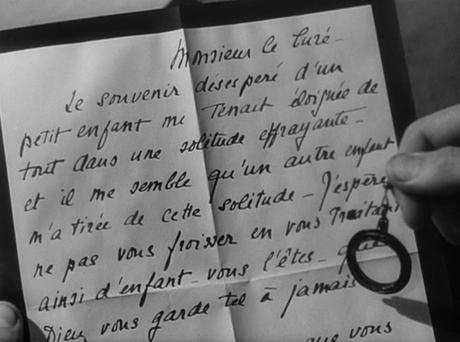 Monsieur le Curé –
Le souvenir désespéré d'un
petit enfant me tenait éloignée de
tout dans une solitude effrayante –
et il me semble qu'un autre enfant
m'a tirée de cette solitude – J'espère
ne pas vous froisser en vous traitant
ainsi d'enfant – vous l'êtes – que
Dieu vous garde tel à jamais
que vous